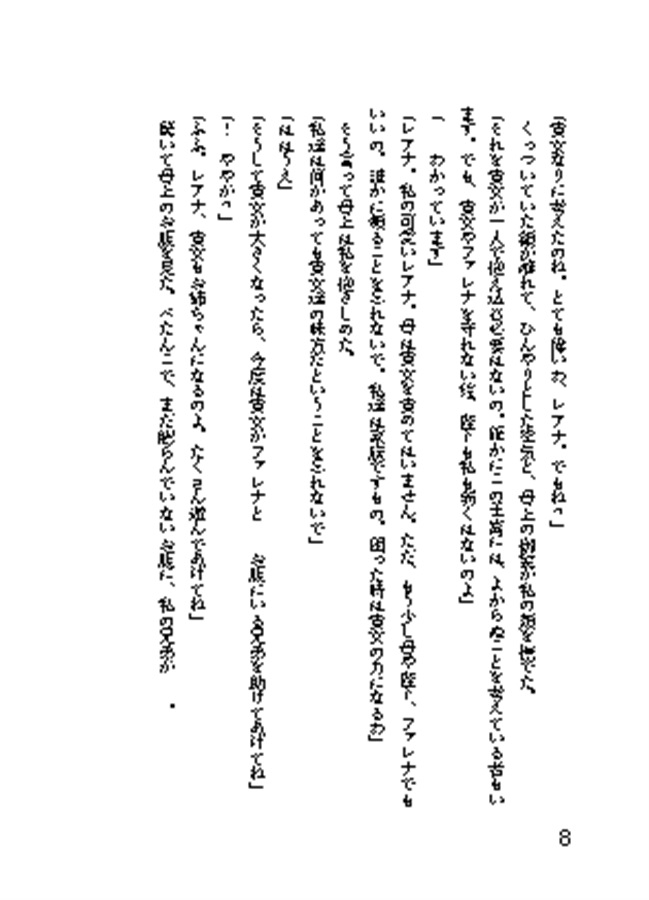 「貴女なりに考えたのね。とても偉いわ、レアナ。でもね？」
くっついていた額が離れて、ひんやりとした空気と、母上の御髪が私の頬を撫でた。
「それを貴女が一人で抱え込む必要はないの。確かにこの王宮には、よからぬことを考えている者もい
ます。でも、貴女やファレナを守れない程、陛下も私も弱くはないのよ」
「　わかっています」
「レアナ。私の可愛いレアナ。母は貴女を責めてはいません。ただ、もう少し母や陛下、ファレナでも
いいの。誰かに頼ることを忘れないで。私達は家族ですもの。困った時は貴女の力になるわ」
そう言って母上は私を抱きしめた。
「私達は何があっても貴女達の味方だということを忘れないで」
「ははうえ」
「そうして貴女が大きくなったら、今度は貴女がファレナと　　お腹にいる兄弟を助けてあげてね」
「！　ややが？」
「ふふ。レアナ、貴女もお姉ちゃんになるのよ。たくさん遊んであげてね」
驚いて母上のお腹を見た。ぺたんこで、まだ膨らんでいないお腹に、私の兄弟が　　．
8